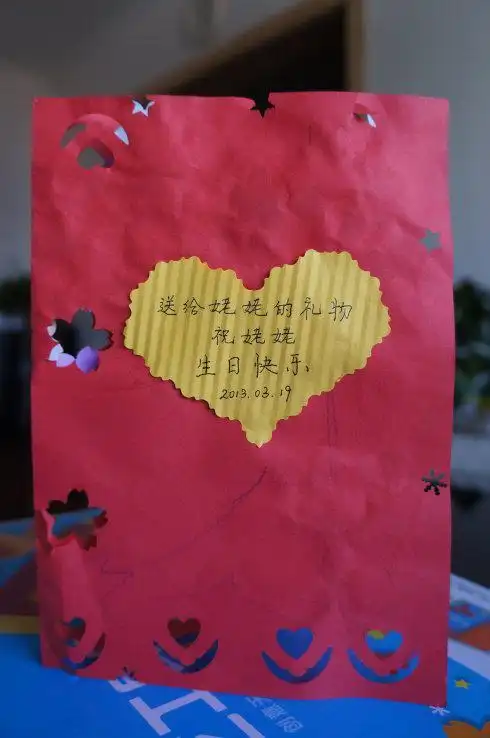 送给姥姥的礼物
祝姥姥
生日快乐
2013.03.19